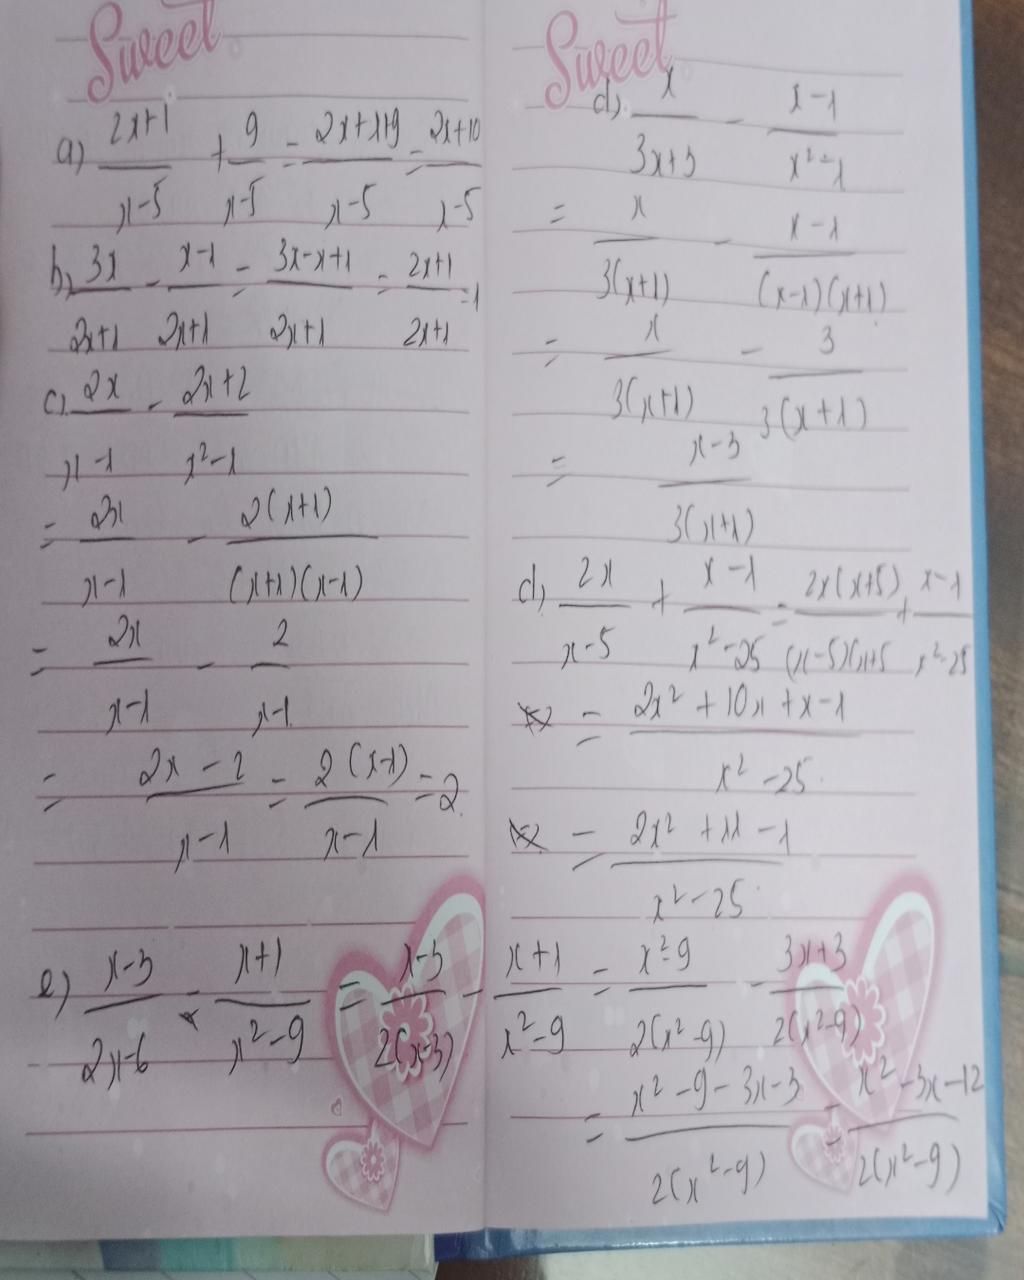 Sweet
a) (2x+1)/(x-5) + 9/(x-5) = (2x+1+9)/(x-5) = (2x+10)/(x-5)
b) 3x/(2x+1) - (x-1)/(2x+1) = (3x-x+1)/(2x+1) = (2x+1)/(2x+1) = 1
c) 2x/(x-1) - (2x+2)/(x²-1)
= 2x/(x-1) - 2(x+1)/(x+1)(x-1)
= 2x/(x-1) - 2/(x-1)
= (2x-2)/(x-1) = 2(x-1)/(x-1) = 2
Sweet
d) x/(3x+3) - (x-1)/(x²-1)
= x/3(x+1) - (x-1)/(x-1)(x+1)
= x/3(x+1) - 3/3(x+1)
= (x-3)/3(x+1)
d) 2x/(x-5) + (x-1)/(x²-25) = 2x(x+5)/(x-5)(x+5 + (x-1)/(x²-25)
= (2x²+10x+x-1)/(x²-25)
= (2x²+11-1)/(x²-25)
e) (x-3)/(2x-6) - (x+1)/(x²-9) = (x-3)/2(x-3) - (x+1)/(x²-9) = (x²-9)/2(x²-9) - (3x+3)/2(x²-9)
= (x²-9-3x-3)/2(x²-9) = (x²-3x-12)/2(x²-9)